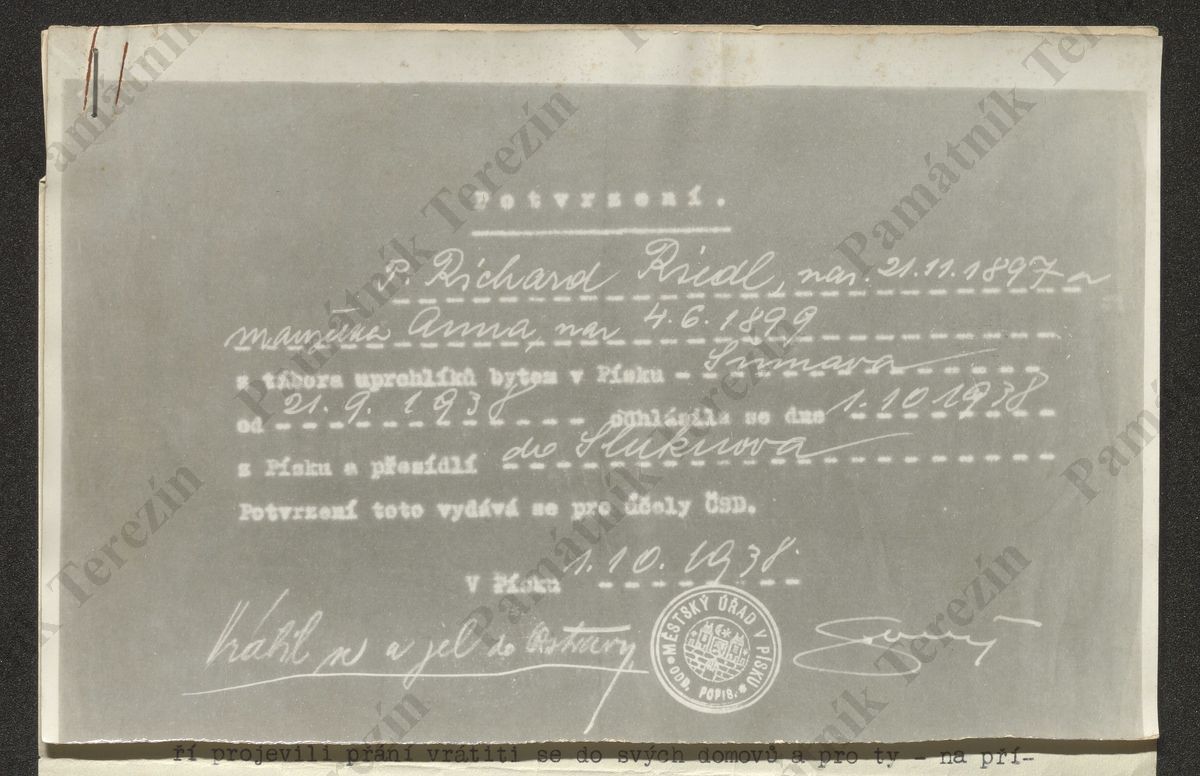 Potvrzení.
P. Richard Riedl, nar. 21.11.1897 a
manželka Anna, nar 4.6.1899
z tábora uprchlíků bytem v Písku Šumava
od 21.9.1938 odhlásila se dne 1.10 1938
z Písku a přesídlí do Šluknova
Potvrzení toto vydává se pro účely ČSD.
V Písku 1.10.1938.
Vrátil se a jel do Ostravy
MĚSTSKÝ ÚŘAD V PÍSKU
ODD. POPIS.
ří projevili přání vrátiti se do svých domovů a pro ty - na pří-
Památník Terezín
Památník Terezín
Památník Terezín
Památník Terezín